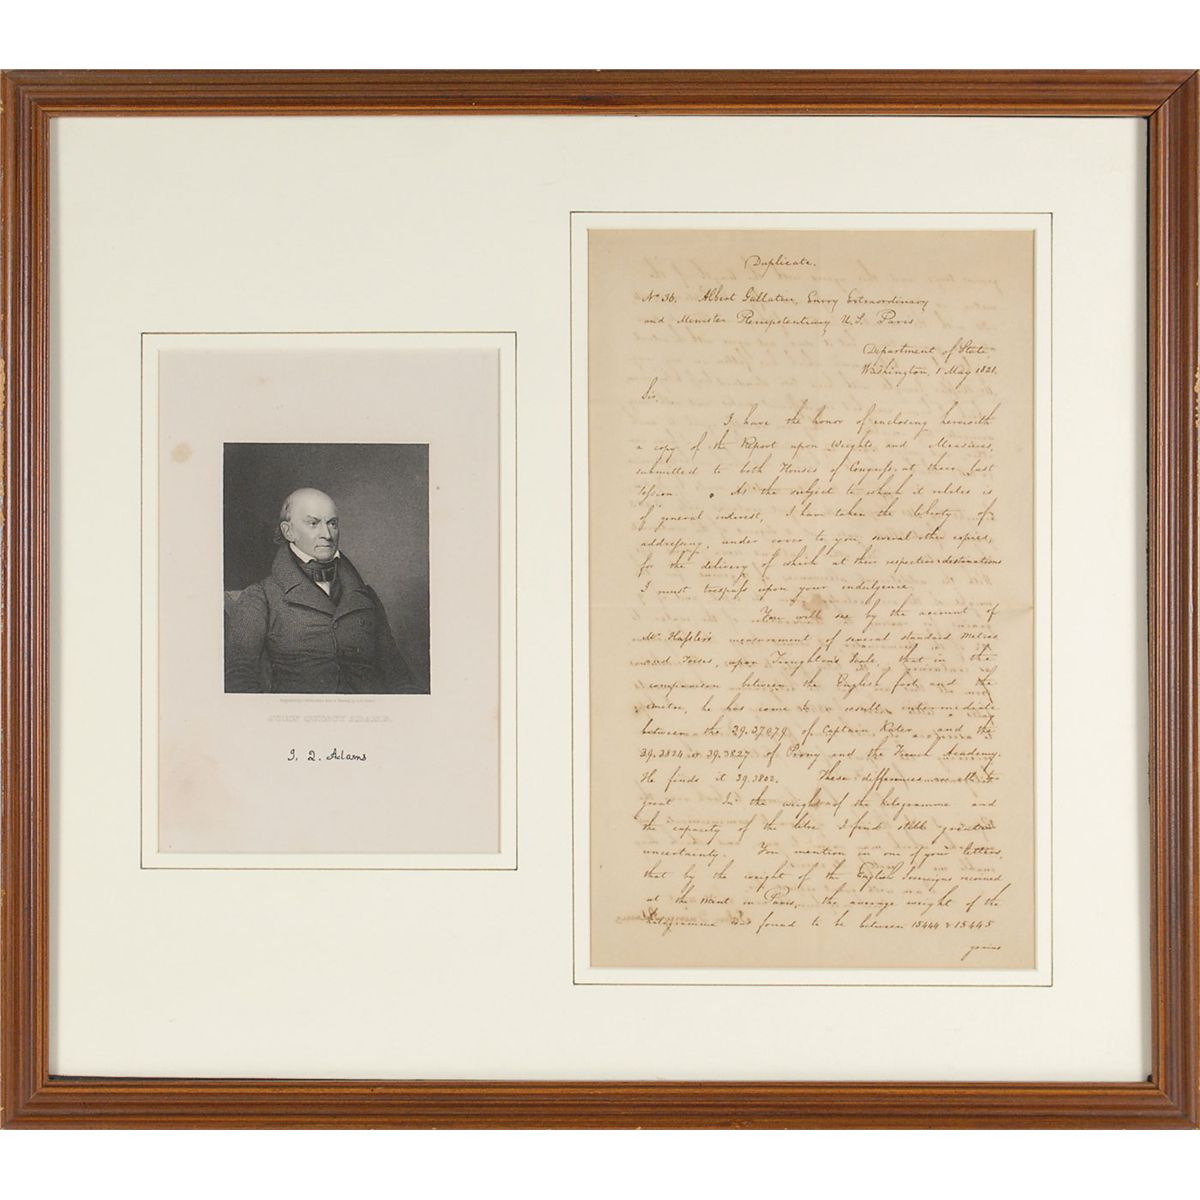 JOHN QUINCY ADAMS.
J. Q. Adams
Duplicate.
No 36. Albert Gallatin, Envoy Extraordinary
and Minister Plenipotentiary U.S. Paris
Department of State,
Washington, 1 May 1821.
Sir,
I have the honor of enclosing herewith
a copy of the Report upon Weights and Measures,
submitted to both Houses of Congress, at their last
Session. As the subject to which it relates is
of general interest, I have taken the liberty of
addressing, under cover to you, several other copies,
for the delivery of which at their respective destinations
I must trespass upon your indulgence.
You will see by the account of
Mr. Hassler's measurement of several standard Metres
and Toises, upon Troughton's Scale, that in the
comparison between the English foot and the
metre, he has come to a result intermediate
between the 39.37079 of Captain Kater and the
39.3824 or 39.3827 of Prony and the French Academy.
He finds it 39.3802. These differences are
great. In the weight of the kilogramme and
the capacity of the litre I find still greater
uncertainty. You mention in one of your letters,
that by the weight of the English Sovereigns received
at the Mint in Paris, the average weight of the
kilogramme was found to be between 15444 & 15445
grains